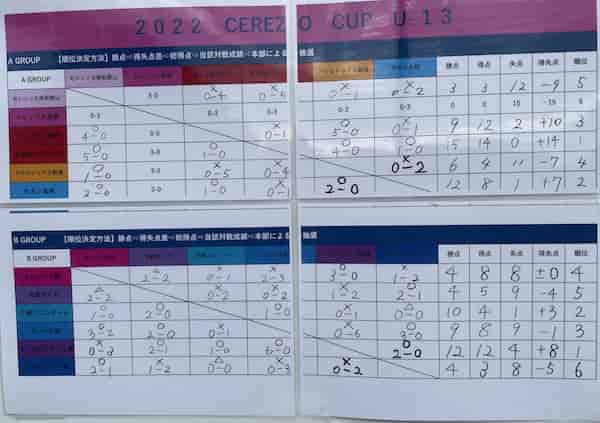 2022 CEREZO CUP U-13
A GROUP 【順位決定方法】勝点⇒得失点差⇒総得点⇒当該対戦成績⇒本部による 抽選
A GROUP 勝点 得点 失点 得失点 順位
3-0 × 0-4 × 0-5 × 0-1 × 0-2 3 3 12 -9 5
0-3 0-3 0-3 0-3 0-3 0 0 15 -15 6
○ 4-0 3-0 × 0-1 ○ 5-0 × 0-1 9 12 2 +10 3
○ 5-0 3-0 ○ 1-0 ○ 4-0 ○ 1-0 15 14 0 +14 1
○ 1-0 3-0 × 0-5 × 0-4 × 0-2 6 4 11 -7 4
○ 2-0 3-0 ○ 1-0 × 0-1 ○ 2-0 12 8 1 +7 2
B GROUP 【順位決定方法】勝点⇒得失点差⇒総得点⇒当該対戦成績⇒本部による 抽選
B GROUP 勝点 得点 失点 得失点 順位
△ 2-2 × 0-1 × 2-3 ○ 3-0 × 1-2 4 8 8 ±0 4
△ 2-2 × 0-2 × 0-2 × 1-2 ○ 2-1 4 5 9 -4 5
○ 1-0 ○ 2-0 ○ 1-0 × 0-1 △ 0-0 10 4 1 +3 2
○ 3-2 ○ 2-0 × 0-1 × 0-6 ○ 3-0 9 8 9 -1 3
× 0-3 ○ 2-1 ○ 1-0 ○ 6-0 ○ 2-0 12 12 4 +8 1
○ 2-1 × 1-2 △ 0-0 × 0-3 × 0-2 4 3 8 -5 6